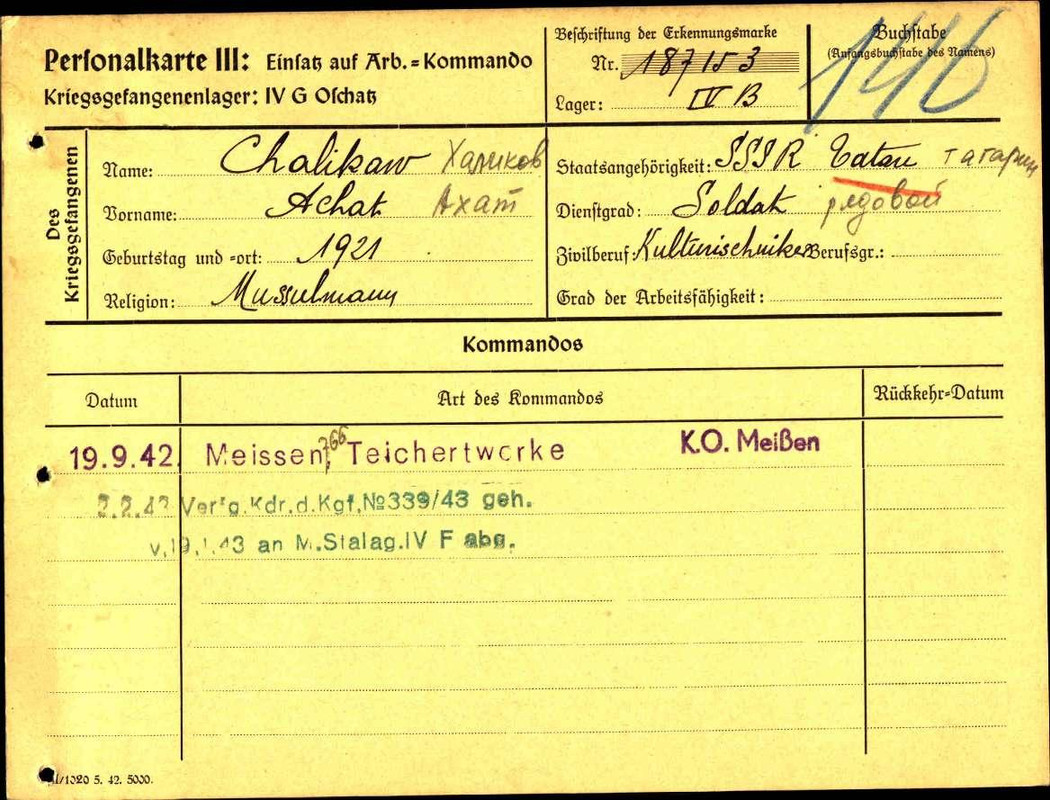 Personalkarte III: Einsatz auf Arb.=Kommando
Kriegsgefangenenlager: IV G Oschatz
Beschriftung der Erkennungsmarke
Nr. 187153
Lager: IV B
Buchstabe
(Anfangsbuchstabe des Namens)
146
Des Kriegsgefangenen
Name: Chalikaw Халиков
Vorname: Achat Ахат
Geburtstag und =ort: 1921
Religion: Musselmann
Staatsangehörigkeit: SSSR Tatare татарин
Dienstgrad: Soldat рядовой
Zivilberuf: Berufsgr.:
Grad der Arbeitsfähigkeit:
Kommandos
Datum Art des Kommandos Rückkehr=Datum
19.9.42. Meissen, 766 Teichertwerke K.O. Meißen
2.2.43 Verfg.Kdr.d.Kgf.№339/43 geh.
v.19.1.43 an M.Stalag.IV F abg.
/1020 5. 42. 5000.